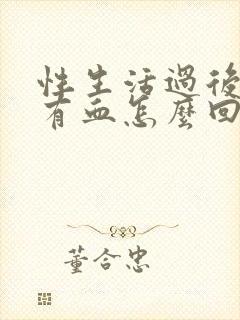 性生活過後
有血怎麼回
董合忠